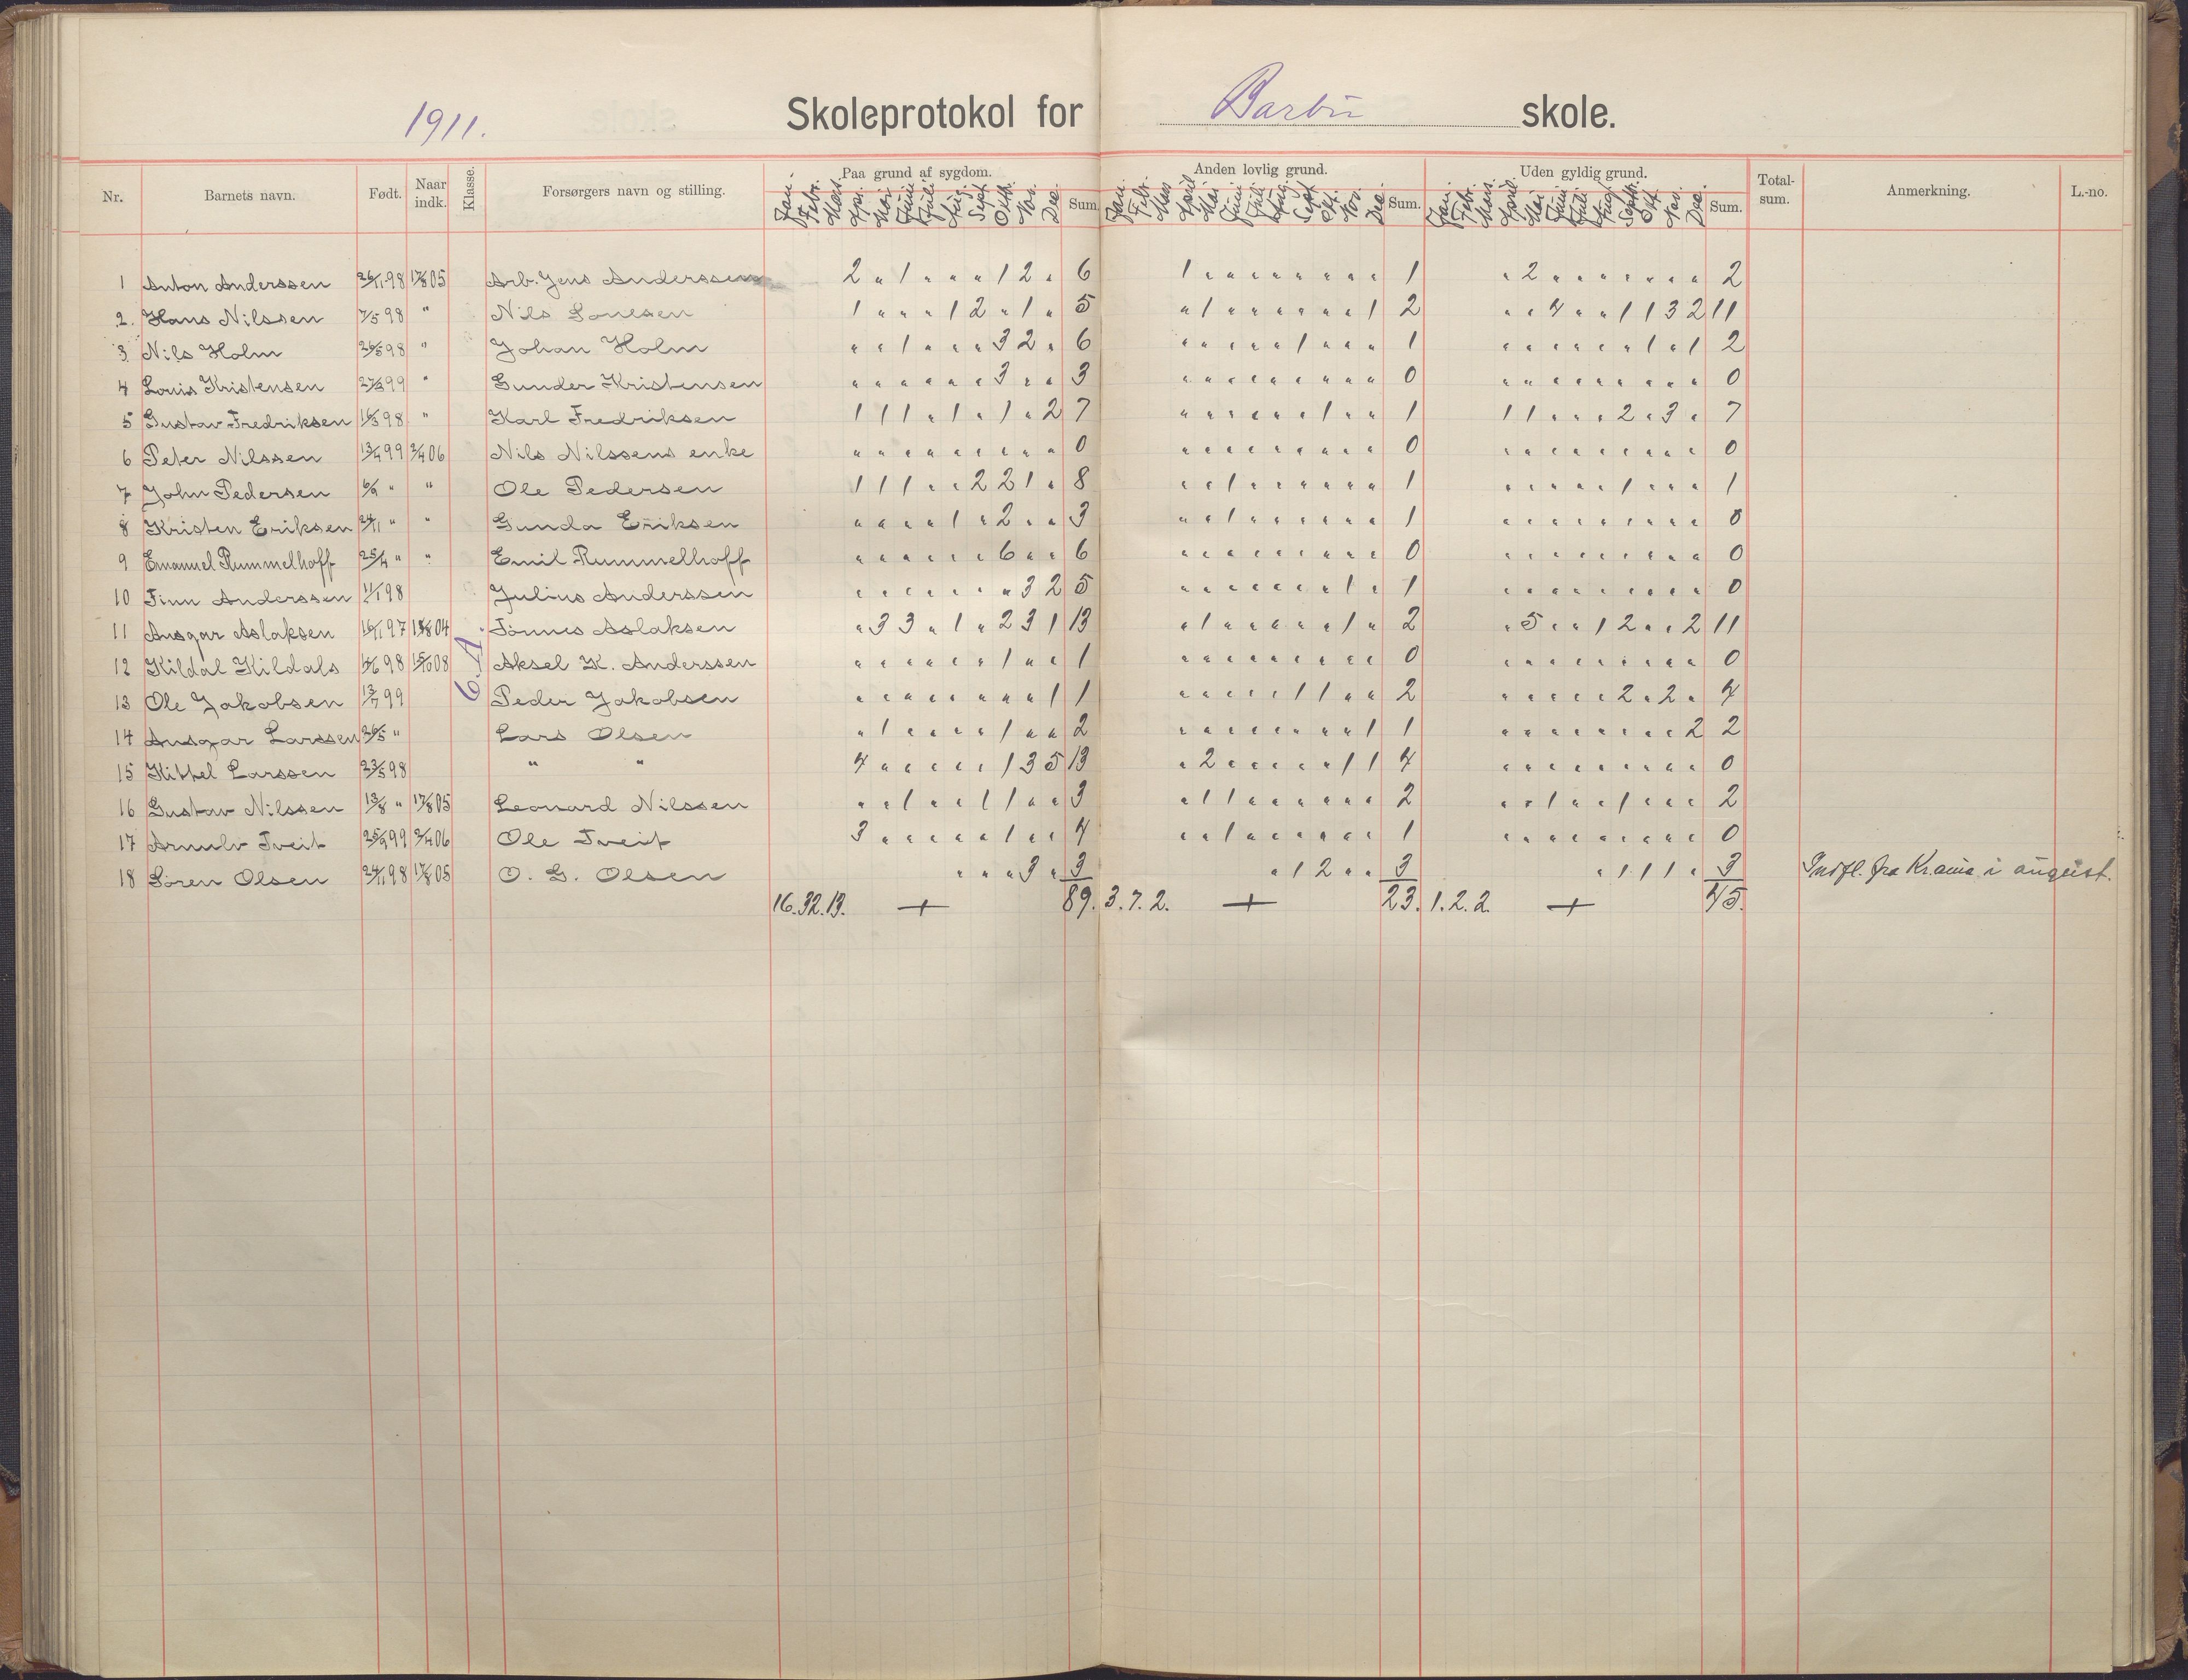 1911. Skoleprotokol for Barbu skole.
Nr. Barnets navn. Født. Naar indk. Klasse. Forsørgers navn og stilling. Paa grund af sygdom. Sum. Anden lovlig grund. Sum. Uden gyldig grund. Sum. Total-sum. Anmerkning. L.-no.
Jan. Febr. Mars Apr. Mai. Juni Juli Aug. Sept Okt. Nov. Dec. Jan. Febr. Mars April Mai Juni Juli Aug. Sept Okt. Nov. Dec. Jan. Febr. Mars. April. Mai. Juni Juli Aug Septbr. Okt. Nov. Dec.
1 Anton Anderssen 26/11 98 17/8 05 Arb. Jens Anderssen 2 " 1 " " " 1 2 " 6 1 " " " " " " " " 1 " 2 " " " " " " " 2
2. Hans Nilssen 7/5 98 " Nils 1 " " " 1 2 " 1 " 5 " 1 " " " " " " 1 2 " " 4 " " 1 1 3 2 11
3 Nils Holm 26/5 98 " Johan Holm " " 1 " " " 3 2 " 6 " " " " " 1 " " " 1 " " " " " " 1 " 1 2
4 Louis Kristensen 27/3 99 " Gunder Kristensen " " " " " " 3 " " 3 " " " " " " " " " 0 " " " " " " " " " 0
5 Gustav Fredriksen 16/3 98 " Karl Fredriksen 1 1 1 " 1 " 1 " 2 7 " " " " " " 1 " " 1 1 1 " " " 2 " 3 " 7
6 Peter Nilssen 13/4 99 3/4 06 Nils Nilssens enke " " " " " " " " " 0 " " " " " " " " " 0 " " " " " " " " " 0
7 John Pedersen 6/9 " " Ole Pedersen 1 1 1 " " 2 2 1 " 8 " " 1 " " " " " " 1 " " " " " 1 " " " 1
8 Kristen Eriksen 24/11 " " Gunda Eriksen " " " " 1 " 2 " " 3 " " 1 " " " " " " 1 " " " " " " " " " 0
9 Emanuel Rummelhoff 25/4 " " Emil Rummelhoff " " " " " " 6 " " 6 " " " " " " " " " 0 " " " " " " " " " 0
10 Finn Anderssen 11/1 98 Julius Anderssen " " " " " " " 3 2 5 " " " " " " " 1 " 1 " " " " " " " " " 0
11 Ansgar Aslaksen 16/1 97 15/8 04 Tønnes Aslaksen " 3 3 " 1 " 2 3 1 13 " 1 " " " " " 1 " 2 " 5 " " 1 2 " " 2 11
12 Kildal Kildals 14/6 98 15/10 08 6 A Aksel K. Anderssen " " " " " " 1 " " 1 " " " " " " " " " 0 " " " " " " " " " 0
13 Ole Jakobsen 13/7 99 Peder Jakobsen " " " " " " " " 1 1 " " " " " 1 1 " " 2 " " " " " 2 " 2 " 4
14 Ansgar Larssen 26/5 " Lars Olsen " 1 " " " " 1 " " 2 " " " " " " " " 1 1 " " " " " " " " 2 2
15 Kittel Larssen 23/5 98 " " 4 " " " " " 1 3 5 13 " 2 " " " " " 1 1 4 " " " " " " " " " 0
16 Gustav Nilssen 13/8 " 17/8 05 Leonard Nilssen " " 1 " " 1 1 " " 3 " 1 1 " " " " " " 2 " " 1 " " 1 " " " 2
17 Arnulv Tveit 25/9 99 3/4 06 Ole Tveit 3 " " " " " 1 " " 4 " " 1 " " " " " " 1 " " " " " " " " " 0
18 Søren Olsen 24/11 98 17/8 05 O. G. Olsen " " " 3 " 3 " 1 2 " " 3 " 1 1 1 " 3 Indfl. fra Krania i august.
16. 32. 13. + 89. 3. 7. 2. + 23. 1. 2. 2. + 45.